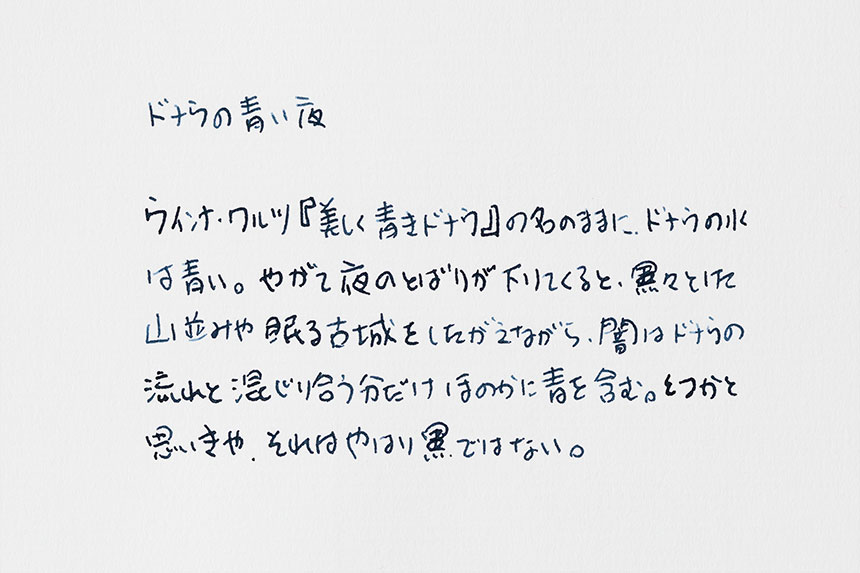 ドナウの青い夜
ウインナ・ワルツ『美しく青きドナウ』の名のままに、ドナウの水
は青い。やがて夜のとばりが下りてくると、黒々とした
山並みや眠る古城をしたがえながら、闇はドナウの
流れと混じり合う分だけほのかに青を含む。
思いきや、それはやはり黒ではない。